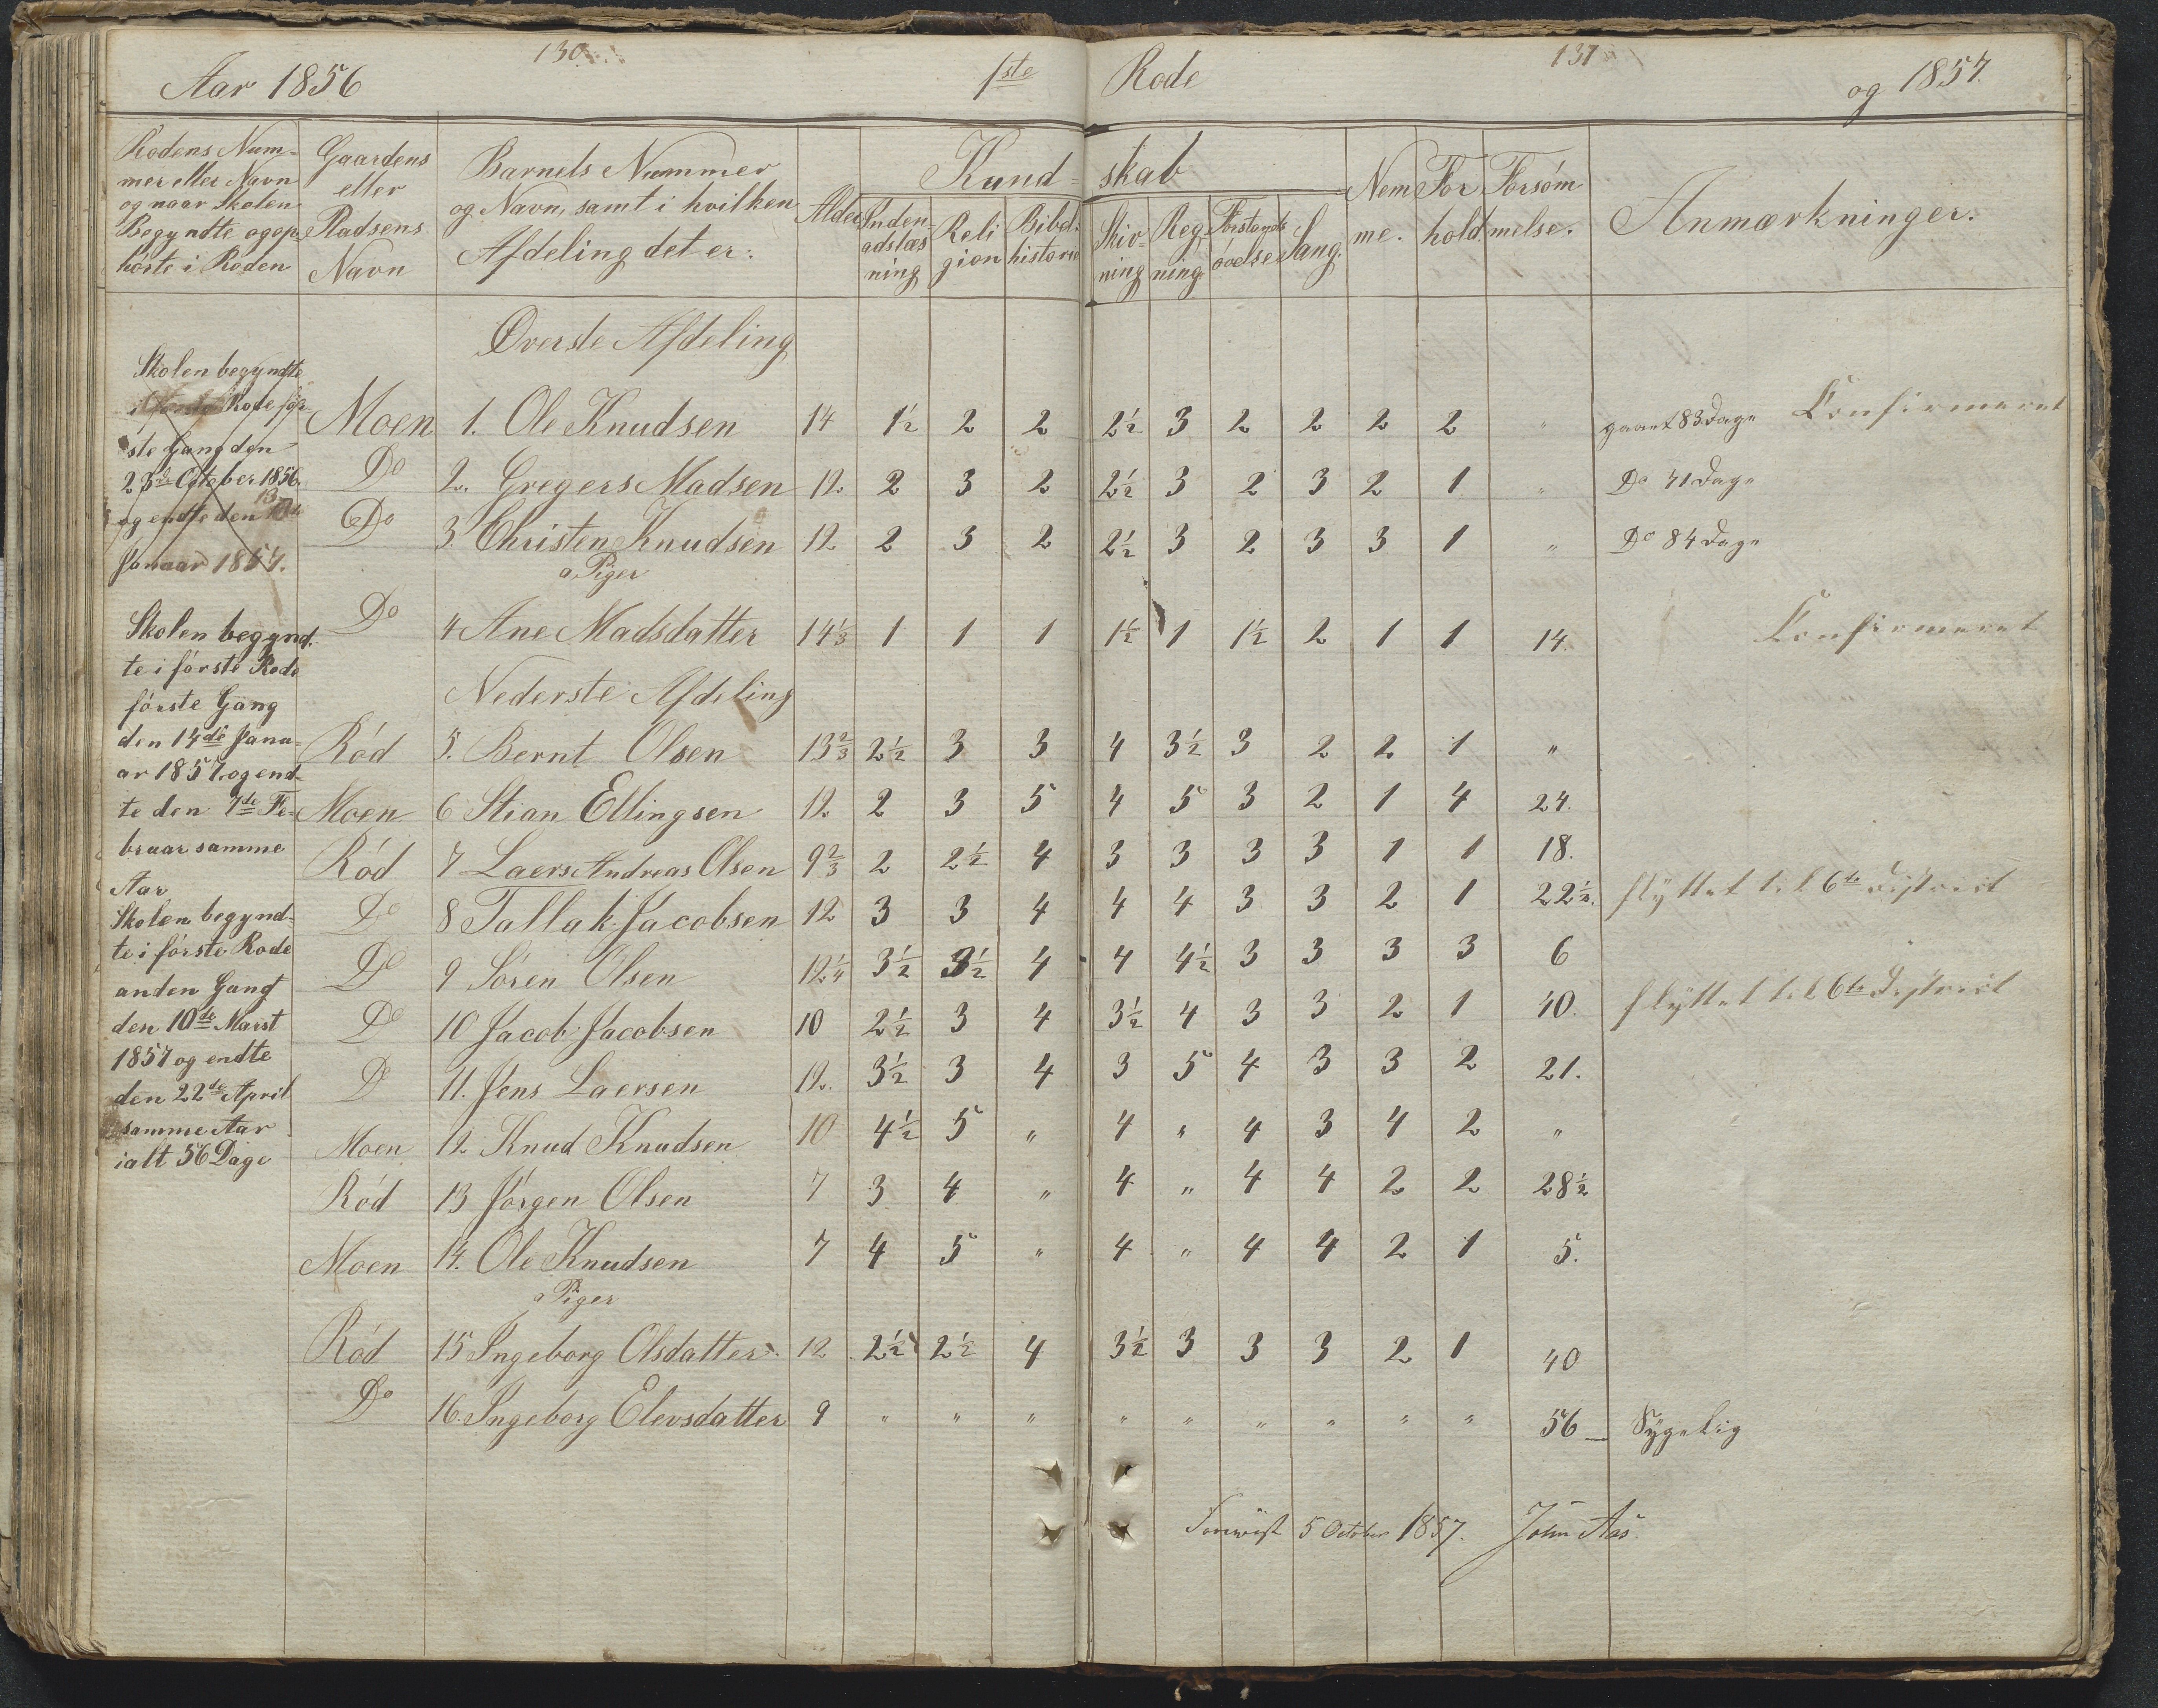 130. 131
Aar 1856 1ste Rode og 1857.
Rodens Num- Gaardens Barnets Nummer Kund- skab Nem For Forsøm
mer eller Navn eller og Navn, samt i hvilken Alder Inden- Reli Bibel- Skiv- Reg- Forstands Sang. me. hold. melse. Anmærkninger.
og naar Skolen Pladsens Afdeling det er: adslæs gion historie ning ning øvelse
Begyndte og op- Navn ning
hørte i Roden
Øverste Afdeling
Skolen begyndte
i første Rode før-
ste Gang den
23de October 1856.
og endte den 13de
Januar 1857.
Moen 1. Ole Knudsen 14 1½ 2 2 2½ 3 2 2 2 2 " gaaet 83 Dage Confirmeret
Do 2. Gregers Madsen 12 2 3 2 2½ 3 2 3 2 1 " Do 41 Dage
Do 3. Christen Knudsen 12 2 3 2 2½ 3 2 3 3 1 " Do 84 Dage
a Piger
Do 4 Ane Madsdatter 14⅓ 1 1 1 1½ 1 1½ 2 1 1 14. Confirmeret
Skolen begynd-
te i første Rode
første Gang
den 14de Janu-
ar 1857. og end-
te den 7de Fe-
bruar samme
Aar
Skolen begynd-
te i første Rode
anden Gang
den 10de Marst
1857 og endte
den 22de April
samme Aar
ialt 56 Dage
Nederste Afdeling
Rød 5. Bernt Olsen 13⅔ 2½ 3 3 4 3½ 3 2 2 1 "
Moen 6 Stian Ellingsen 12 2 3 5 4 5 3 2 1 4 24.
Rød 7 Laers Andreas Olsen 9⅔ 2 2½ 4 3 3 3 3 1 1 18.
Do 8 Tallak Jacobsen 12 3 3 4 4 4 3 3 2 1 22½. flyttet til 6te District
Do 9 Søren Olsen 12¼ 3½ 3½ 4 4 4½ 3 3 3 3 6
Do 10 Jacob Jacobsen 10 2½ 3 4 3½ 4 3 3 2 1 40. flyttet til 6te District
Do 11. Jens Laersen 12. 3½ 3 4 3 5 4 3 3 2 21.
Moen 12 Knud Knudsen 10 4½ 5 " 4 " 4 3 4 2 "
Rød 13 Jørgen Olsen 7 3 4 " 4 " 4 4 2 2 28½
Moen 14. Ole Knudsen 7 4 5 " 4 " 4 4 2 1 5.
a Piger
Rød 15 Ingeborg Olsdatter 12 2½ 2½ 4 3½ 3 3 3 2 1 40
Do 16. Ingeborg Elevsdatter 9 " " " " " " " " " 56 Sygelig
5 October 1857. John Aas.